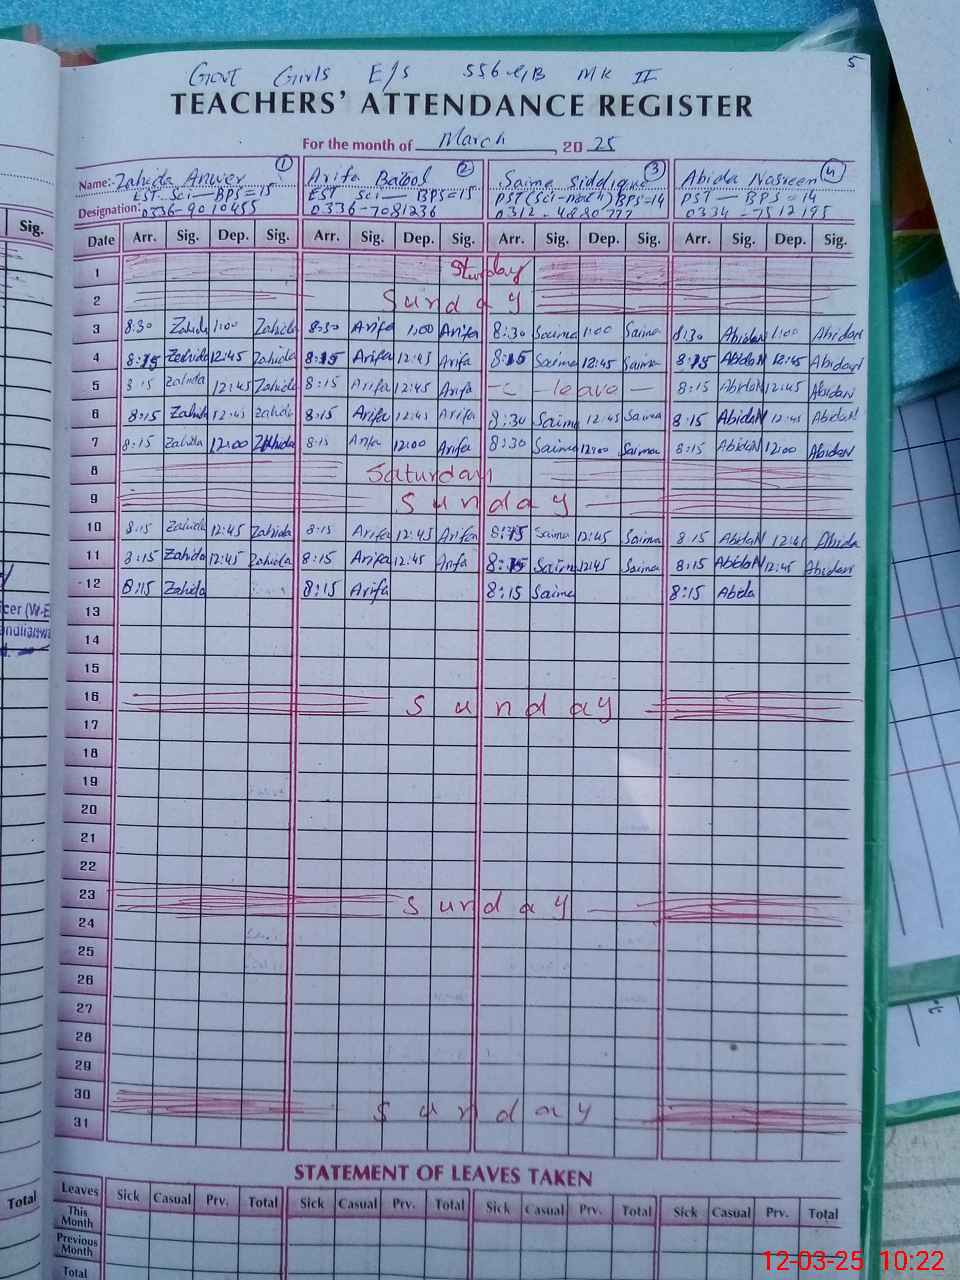 5
Govt Girls E/S 556 G,B MK II
TEACHERS' ATTENDANCE REGISTER
For the month of March, 20 25
Name:- Zahida Anwer ① Arifa Batool ② Saima Siddique ③ Abida Nasreen ④
EST- Sci- BPS=15 EST Sci- BPS=15 PST (Sci-math) BPS=14 PST- BPS=14
Designation: 0336-9010455 0336-7081236 0312-4880777 0334-7512195
Sig.
Date Arr. Sig. Dep. Sig. Arr. Sig. Dep. Sig. Arr. Sig. Dep. Sig. Arr. Sig. Dep. Sig.
1 Sturday
2 Sunday
3 8:30 Zahida 1:00 Zahida 8:30 Arifa 1:00 Arifa 8:30 Saima 1:00 Saima 8:30 AbidaN 1:00 AbidaN
4 8:15 Zahida 12:45 Zahida 8:15 Arifa 12:45 Arifa 8:15 Saima 12:45 Saima 8:15 AbidaN 12:45 AbidaN
5 8:15 Zahida 12:45 Zahida 8:15 Arifa 12:45 Arifa -C - leave - 8:15 AbidaN 12:45 AbidaN
6 8:15 Zahida 12:45 Zahida 8:15 Arifa 12:45 Arifa 8:30 Saima 12:45 Saima 8:15 AbidaN 12:45 AbidaN
7 8:15 Zahida 12:00 Zahida 8:15 Arifa 12:00 Arifa 8:30 Saima 12:00 Saima 8:15 AbidaN 12:00 AbidaN
8 Saturday
9 Sunday
10 8:15 Zahida 12:45 Zahida 8:15 Arifa 12:45 Arifa 8:15 Saima 12:45 Saima 8:15 AbidaN 12:45 Abida
11 8:15 Zahida 12:45 Zahida 8:15 Arifa 12:45 Arifa 8:15 Saima 12:45 Saima 8:15 AbidaN 12:45 AbidaN
12 8:15 Zahida 8:15 Arifa 8:15 Saima 8:15 Abida
cer (W-E
13
14
15
16 Sunday
17
18
19
20
21
22
23 Sunday
24
25
26
27
28
29
30 Sunday
31
STATEMENT OF LEAVES TAKEN
Leaves Sick Casual Prv. Total Sick Casual Prv. Total Sick Casual Prv. Total Sick Casual Prv. Total
Total
This Month
Previous Month
Total
12-03-25 10:22